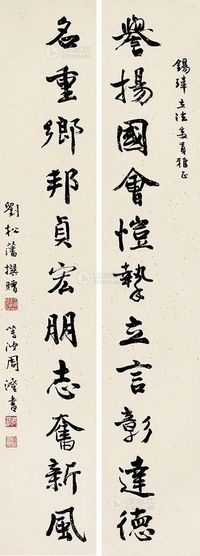 錫璋立法委員雅正
譽揚國會愷摯立言彰達德
名重鄉邦貞宏朋志奮新風
劉松藩撰贈
周澄書